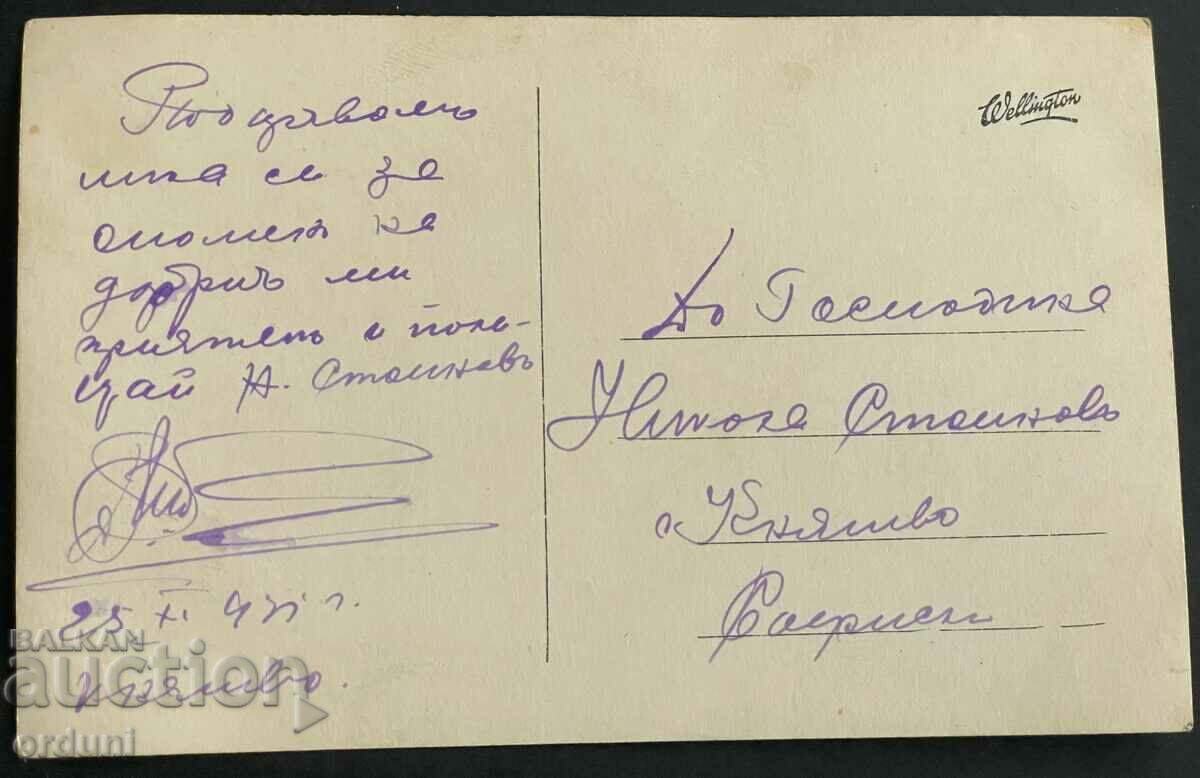 Подавамъ
ми са за
споменъ на
добриъ ми
приятель и поли-
цай Н. Стоиновъ
25 XI. 931 г.
Княжево.
Wellington
До Господина
Никола Стоиновъ
с. Княжево
Софийск
BALKAN
auction
orduni